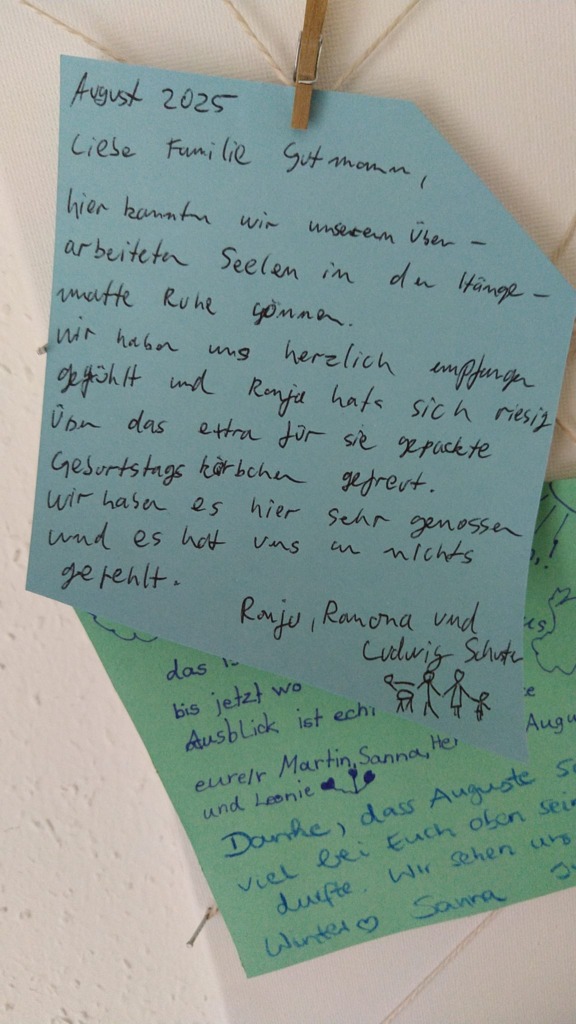 August 2025
Liebe Familie Gutmann,
hier konnten wir unseren Über-
arbeiteten Seelen in der Hänge-
matte Ruhe gönnen.
Wir haben uns herzlich empfangen
gefühlt und Ronja hats sich riesig
über das extra für sie gepackte
Geburtstagskörbchen gefreut.
Wir haben es hier sehr genossen
und es hat uns an nichts
gefehlt.
Ronja, Ramona und
Ludwig
das
bis jetzt wo
Ausblick ist
eure/r Martin, Sanna,
und Leonie
Danke, dass Auguste
viel bei Euch oben sein
durfte. Wir sehen uns
Winter♡ Sanna